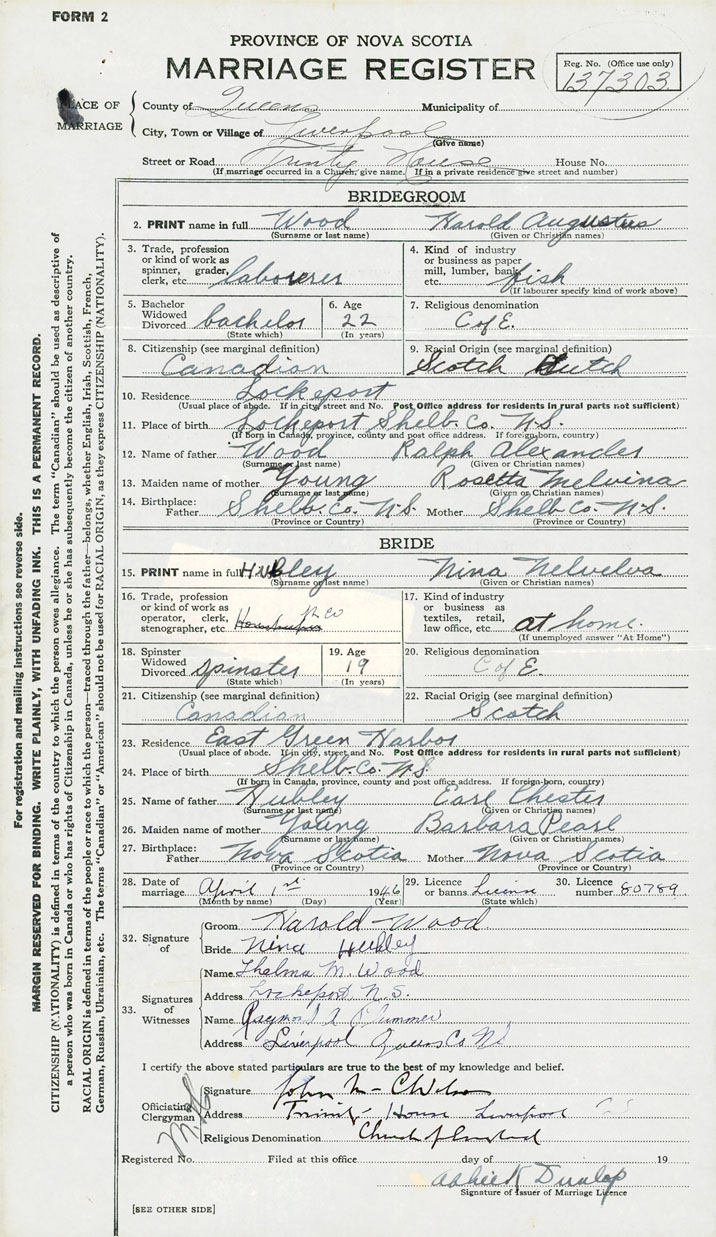 FORM 2
PROVINCE OF NOVA SCOTIA
MARRIAGE REGISTER
Reg. No. (Office use only)
137303
PLACE OF MARRIAGE
County of Queens Municipality of
City, Town or Village of Liverpool
(Give name)
Street or Road Trinity House House No.
(If marriage occurred in a Church, give name. If in a private residence give street and number)
BRIDEGROOM
2. PRINT name in full Wood Harold Augustus
(Surname or last name) (Given or Christian names)
3. Trade, profession or kind of work as spinner, grader, clerk, etc. labourer
4. Kind of industry or business as paper mill, lumber, bank, etc. fish
(If labourer specify kind of work above)
5. Bachelor Widowed Divorced bachelor
(State which)
6. Age 22
(In years)
7. Religious denomination C of E.
8. Citizenship (see marginal definition) Canadian
9. Racial Origin (see marginal definition) Scotch Dutch
10. Residence Lockeport
(Usual place of abode. If in city, street and No. Post Office address for residents in rural parts not sufficient)
11. Place of birth Lockeport Shelb. Co. N.S.
(If born in Canada, province, county and post office address. If foreign-born, country)
12. Name of father Wood Ralph Alexander
(Surname or last name) (Given or Christian names)
13. Maiden name of mother Young Rosetta Melvina
(Surname or last name) (Given or Christian names)
14. Birthplace: Father Shelb. Co. N.S. Mother Shelb Co. N.S.
(Province or Country) (Province or Country)
BRIDE
15. PRINT name in full Hubley Nina Nelvelva
(Surname or last name) (Given or Christian names)
16. Trade, profession or kind of work as operator, clerk, stenographer, etc.
17. Kind of industry or business as textiles, retail, law office, etc. at home.
(If unemployed answer "At Home")
18. Spinster Widowed Divorced spinster
(State which)
19. Age 19
(In years)
20. Religious denomination C of E.
21. Citizenship (see marginal definition) Canadian
22. Racial Origin (see marginal definition) Scotch
23. Residence East Green Harbor
(Usual place of abode. If in city, street and No. Post Office address for residents in rural parts not sufficient)
24. Place of birth Shelb. Co. N.S.
(If born in Canada, province, county and post office address. If foreign-born, country)
25. Name of father Hubley Earl Chester
(Surname or last name) (Given or Christian names)
26. Maiden name of mother Young Barbara Pearl
(Surname or last name) (Given or Christian names)
27. Birthplace: Father Nova Scotia Mother Nova Scotia
(Province or Country) (Province or Country)
28. Date of marriage April 1st 1946
(Month by name) (Day) (Year)
29. Licence or banns
(State which)
30. Licence number 80789
32. Signature of
Groom Harold Wood
Bride Nina Hubley
33. Signatures of Witnesses
Name Thelma M. Wood
Address Lockeport N.S.
Name Raymond A Plummer
Address Liverpool Queens Co NS
I certify the above stated particulars are true to the best of my knowledge and belief.
Officiating Clergyman
Signature John M
Address Trinity House Liverpool
Religious Denomination Church of England
Registered No. Filed at this office day of 19
Dunlop
Signature of Issuer of Marriage Licence
[SEE OTHER SIDE]
For registration and mailing instructions see reverse side.
MARGIN RESERVED FOR BINDING. WRITE PLAINLY, WITH UNFADING INK. THIS IS A PERMANENT RECORD.
CITIZENSHIP (NATIONALITY) is defined in terms of the country to which the person owes allegiance. The term "Canadian" should be used as descriptive of
a person who was born in Canada or who has rights of Citizenship in Canada, unless he or she has subsequently become the citizen of another country.
RACIAL ORIGIN is defined in terms of the people or race to which the person—traced through the father—belongs, whether English, Irish, Scottish, French,
German, Russian, Ukrainian, etc. The terms "Canadian" or "American" should not be used for RACIAL ORIGIN, as they express CITIZENSHIP (NATIONALITY).